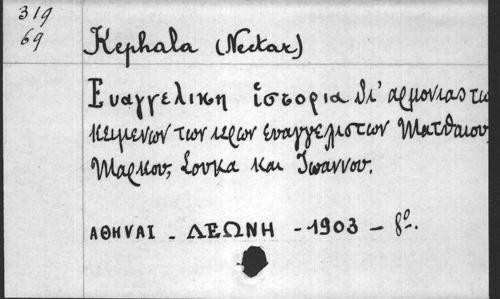 319
69
Kephala (Nectar)
Ευαγγελικη ἱστορια δι' αρμονιας τω
κειμενων των ιερων ευαγγελιστων Ματθαιου
Μαρκου, Λουκα και Ιωαννου.
ΑΘΗΝΑΙ - ΛΕΩΝΗ - 1903 - 8º.